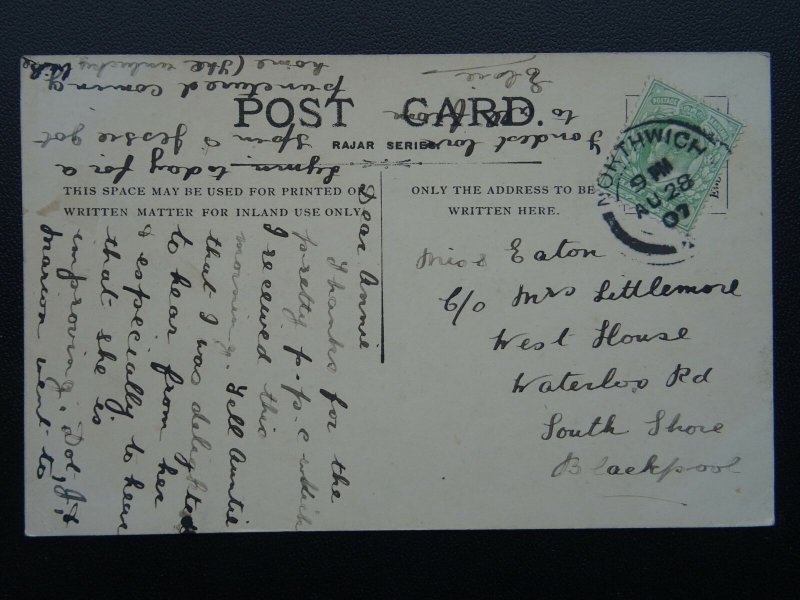 POST CARD.
RAJAR SERIES
THIS SPACE MAY BE USED FOR PRINTED OR
WRITTEN MATTER FOR INLAND USE ONLY.
ONLY THE ADDRESS TO BE
WRITTEN HERE.
POSTAGE
NORTHWICH
9 PM
AU 28
07
Miss Eaton
C/o Mrs Littlemore
West House
Waterloo Rd
South Shore
Blackpool
Dear Annie
Thanks for the
pretty p.p.c which
I received this
morning. Tell Auntie
that I was delighted
to hear from her
& especially to hear
that she is
improving. Dot, J, &
Marion went to
Lymm to-day for a
spin & Jessie got
punctured coming
home (the unlucky
Fondest love
to
Elsie